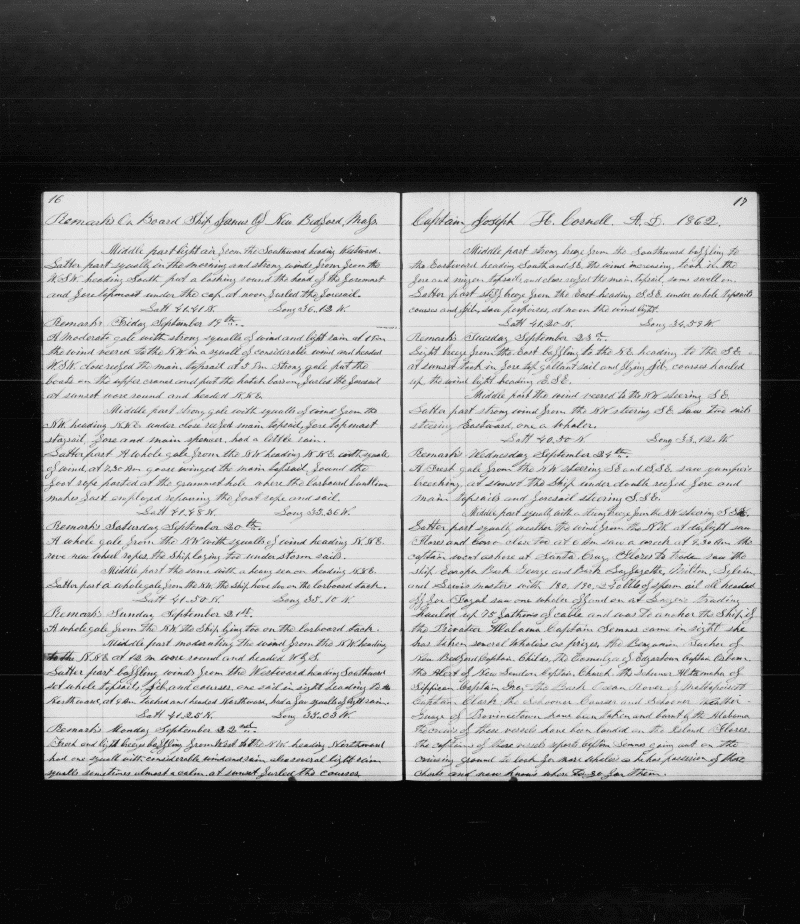 16
Remarks On Board Ship James Of New Bedford, Mass.
Middle part light air from the Southward heading Westward.
Latter part squally in the morning and strong winds from from the
W.S.W. heading South put a lashing round the head of the foremast
and fore topmast under the cap. at noon furled the foresail.
Latt 41.41 N. Long 36.12 W.
Remarks Friday September 19th.
A moderate gale with strong squalls of wind and light rain at 1 Pm
the wind veered to the NW in a squall of considerable wind and headed
W.S.W. close reefed the main topsail at 3 Pm strong gale put the
boats on the upper cranes and put the hatch bars on, furled the foresail
at sunset wore round and headed N.N.E.
Middle part strong gale with squalls of wind from the
NW. heading N.N.E. under close reefed main topsail, fore topmast
staysail, fore and main spencer, had a little rain.
Latter part A whole gale from the NW heading N.N.E. with squalls
of wind, at 7.30 Am goose winged the main topsail, found the
foot rope parted at the grummet hole where the larboard buntline
makes fast employed repairing the foot rope and sail.
Latt 41.48 N. Long 35.26 W.
Remarks Saturday September 20th.
A whole gale from the NW with squalls of wind heading N.N.E.
rove new wheel ropes, the Ship laying too under storm sails.
Middle part the same with a heavy sea on heading N.N.E.
Latter part a whole gale from the NW. the Ship hove too on the larboard tack.
Latt 41.50 N. Long 35.10 W.
Remarks Sunday September 21st.
A whole gale from the N.W. the Ship lying too on the larboard tack.
Middle part moderating the wind from the N.W. heading
N.N.E at 12 m wore round and headed W by S.
Latter part baffling winds from the Westward heading Southward
set whole topsails, jib, and courses, one sail in sight heading to the
Northward, at 8 Am tacked and headed Northward, had a few squalls of light rain.
Latt 41.25 N. Long 35.03 W.
Remarks Monday September 22nd.
Fresh and light breeze baffling from West to the N.W. heading Northward
had one squall with considerable wind and rain also several light rain
squalls sometimes almost a calm. at sunset furled the courses
17
Captain Joseph H. Cornell. A.D. 1862.
Middle part strong breeze from the Southward baffling to
the Eastward heading South and S.E. the wind increasing, took in the
fore and mizen topsails, and close reefed the main topsail, some swell on.
Latter part stiff breeze from the East heading S.S.E. under whole topsails
courses and jib, saw porpoises, at noon the wind light.
Latt 41.20 N. Long 34.59 W.
Remarks Tuesday September 23rd.
Light breeze from the East baffling to the N.E. heading to the S.E.
at sunset took in fore top gallant sail and flying jib, courses hauled
up. the wind light heading E.S.E.
Middle part the wind veered to the NW steering S.E.
Latter part strong wind from the NW steering S.E. saw two sails
steering Eastward, one a whaler.
Latt 40.30 N. Long 33.12 W.
Remarks Wednesday September 24th.
A Fresh gale from the N.W. steering SE and S.S.E. saw
breeching, at sunset the Ship under double reefed fore and
main topsails and foresail steering S.S.E.
Middle part squally with a strong breeze from the NW steering S.S.E.
Latter part squally weather the wind from the N.W. at daylight saw
Flores and Corvo close too at 6 Am saw a at 7.30 Am. the
captain went ashore at Santa Cruz, Flores to trade saw the
ship Europa Bark George and Bark Lafayette,
and masters with 180. 190. 260 bbls of sperm oil all headed
off for Fayal saw one whaler off and on at trading
hauled up 75 fathoms of cable and was to anchor the Ship if
the Privateer Alabama Captain Semmes came in sight she
has taken several Whalers as prizes, the Benjamin Tucker of
New Bedford Captain Childs, the Ocmulgee of Edgartown Captain Osborn
the Alert of New London Captain Church. the Schooner Altamaha of
Sippican Captain Gray, the Bark Ocean Rover of Mattapoisett
Captain Clark the Schooner Courser and Schooner Weather
Gauge of Provincetown have been taken and burnt by the Alabama
the crews of these vessels have been landed on the Island Flores.
The captains of these vessels report Captain Semmes going out on the
cruising ground to look for more Whalers as he has possession of their
charts and now knows where to go for them.